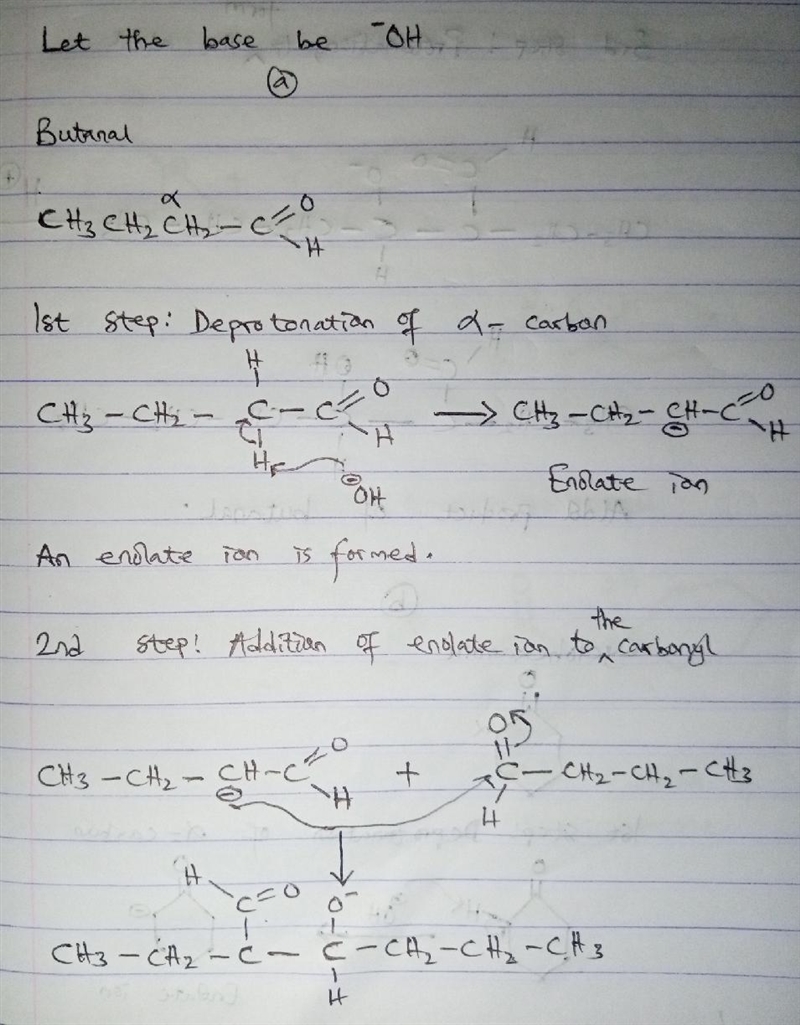 Let the base be ⁻OH
(a)
Butanal
α
CH3 CH2 CH2 – C = O
H
1st step: Deprotonation of α- carbon
H
CH3 – CH2 – C – C = O → CH3 – CH2 – CH – C = O
H ⊖ H
H
⊖OH
Enolate ion
An enolate ion is formed.
the
2nd step: Addition of enolate ion to ^ carbonyl
O
CH3 – CH2 – CH – C = O + C – CH2 – CH2 – CH3
⊖ H H
H
C = O O⁻
CH3 – CH2 – C – C – CH2 – CH2 – CH3
H